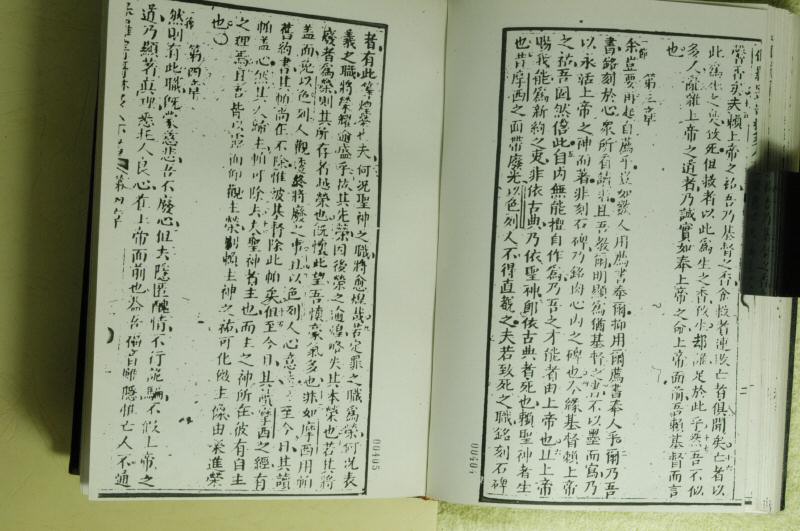 馨香矣夫賴上帝之祐吾乃基督之香於救者連敗亡者俱聞矣亡者以
此為生之息致死但救者以此為生之香致生却誰足於此乎然吾不似
多人竄雜上帝之道者乃誠實如奉上帝之命上帝面前吾賴基督而言
也
第三章
余豈要再起自薦乎豈如數人用薦書奉爾抑用爾薦書奉人乎爾乃吾
書銘刻於心衆所看讀者且吾教爾明顯為猶基督之書不以墨而寫乃
以永活上帝之神而著非刻石碑乃銘肉心內之碑也余緣基督賴上帝
之祐吾固然信此自內無能擅自作為乃吾之才能者由上帝也且上帝
賜我能為新約之吏非依古典乃依聖神卽依古典者死也賴聖神者生
也昔摩西之面帶廢光以色列人不得直覩之夫若致死之職銘刻石碑
00404
者有此等煌榮也夫何況聖神之職將愈煌哉若定罪之職為榮何況表
義之職將榮耀逾盛乎故其先榮因後榮之逾煌略失其本榮也若其將
廢者為榮則其所存者越榮也旣懷此望吾懷豪氣多也非如摩西用帕
盖面免以色列人觀透終將廢之事且以色列人心意至今日其讀
舊約書其帕尚在不除惟被基督除此帕矣但至今日其讀摩西之經有
帕盖心然其人歸主帕可除去夫聖神者主也而主之神所在彼有自主
之理焉且吾皆面而仰觀主榮則賴主神之祐可化做主像由榮進榮
也
第四章
然則有此職旣蒙慈悲吾不廢心但去隱匿醜情不行詭騙不假上帝之
道乃顯著真理悉托人良心在上帝面前也盖吾福音雖隱惟亡人不通
00405